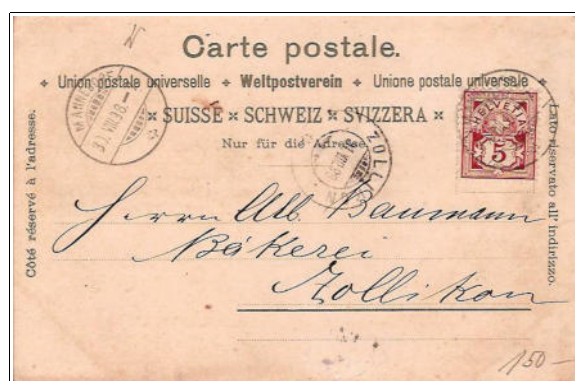 N
Carte postale.
Union postale universelle + Weltpostverein + Unione postale universale
SUISSE × SCHWEIZ × SVIZZERA ×
Nur für die Adresse.
Côté réservé à l'adresse.
Lato riservato all' indirizzo.
HELVETIA
5
Herrn Alb. Baumann
Bäkerei
Zollikon
150-